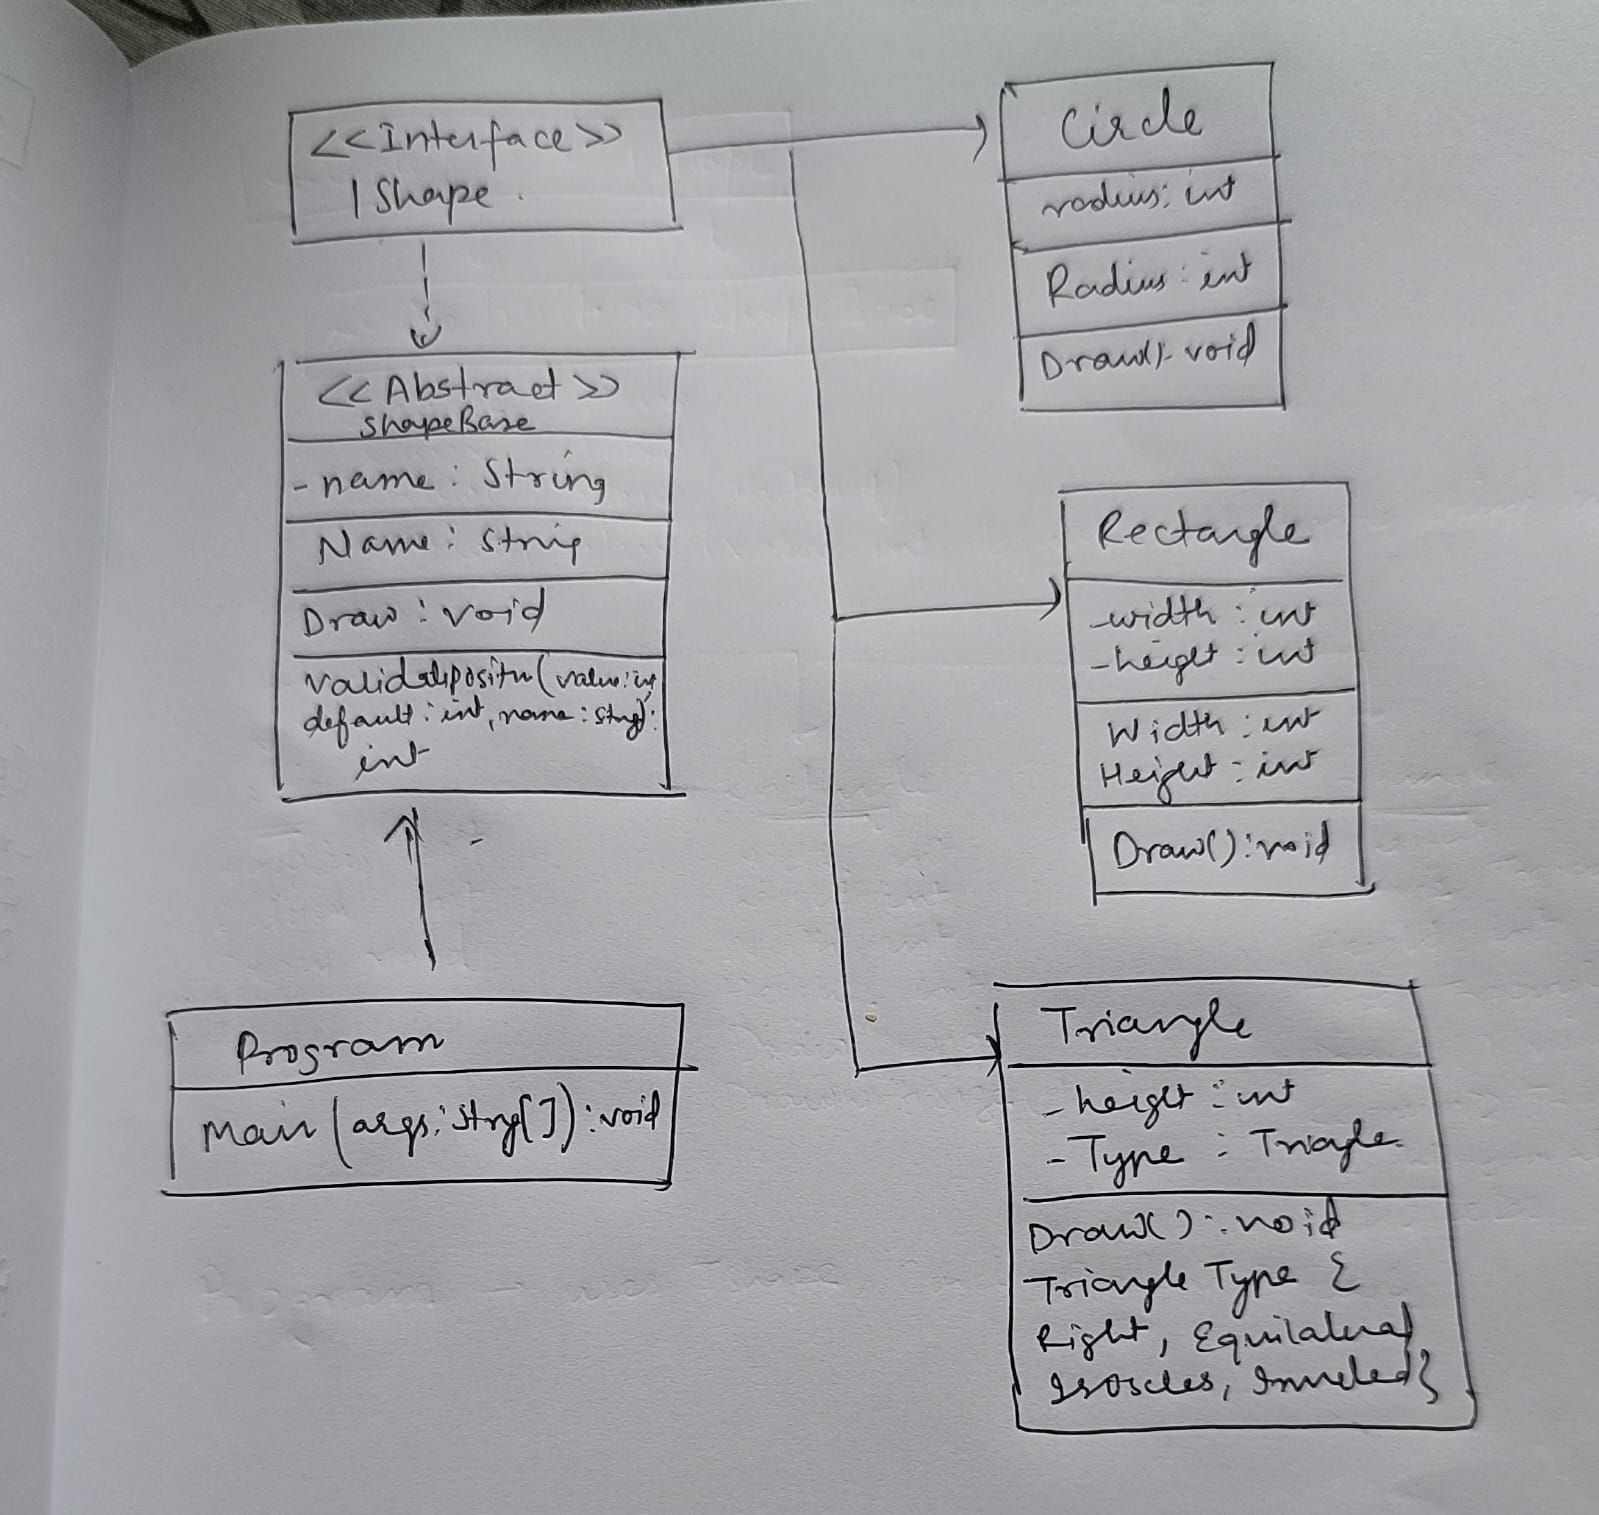 <<Interface>>
IShape.
<<Abstract>>
ShapeBase
- name : String
Name : String
Draw : void
validatepositu(value:int
default : int, name : Strng):
int
Program
Main (args: Strng[]) : void
Circle
radius: int
Radius : int
Draw() : void
Rectangle
- width : int
- height : int
Width : int
Height : int
Draw() : void
Triangle
- height : int
- Type : Triagle
Draw() : void
Triangle Type {
Right, Equilateral
Isosceles, }